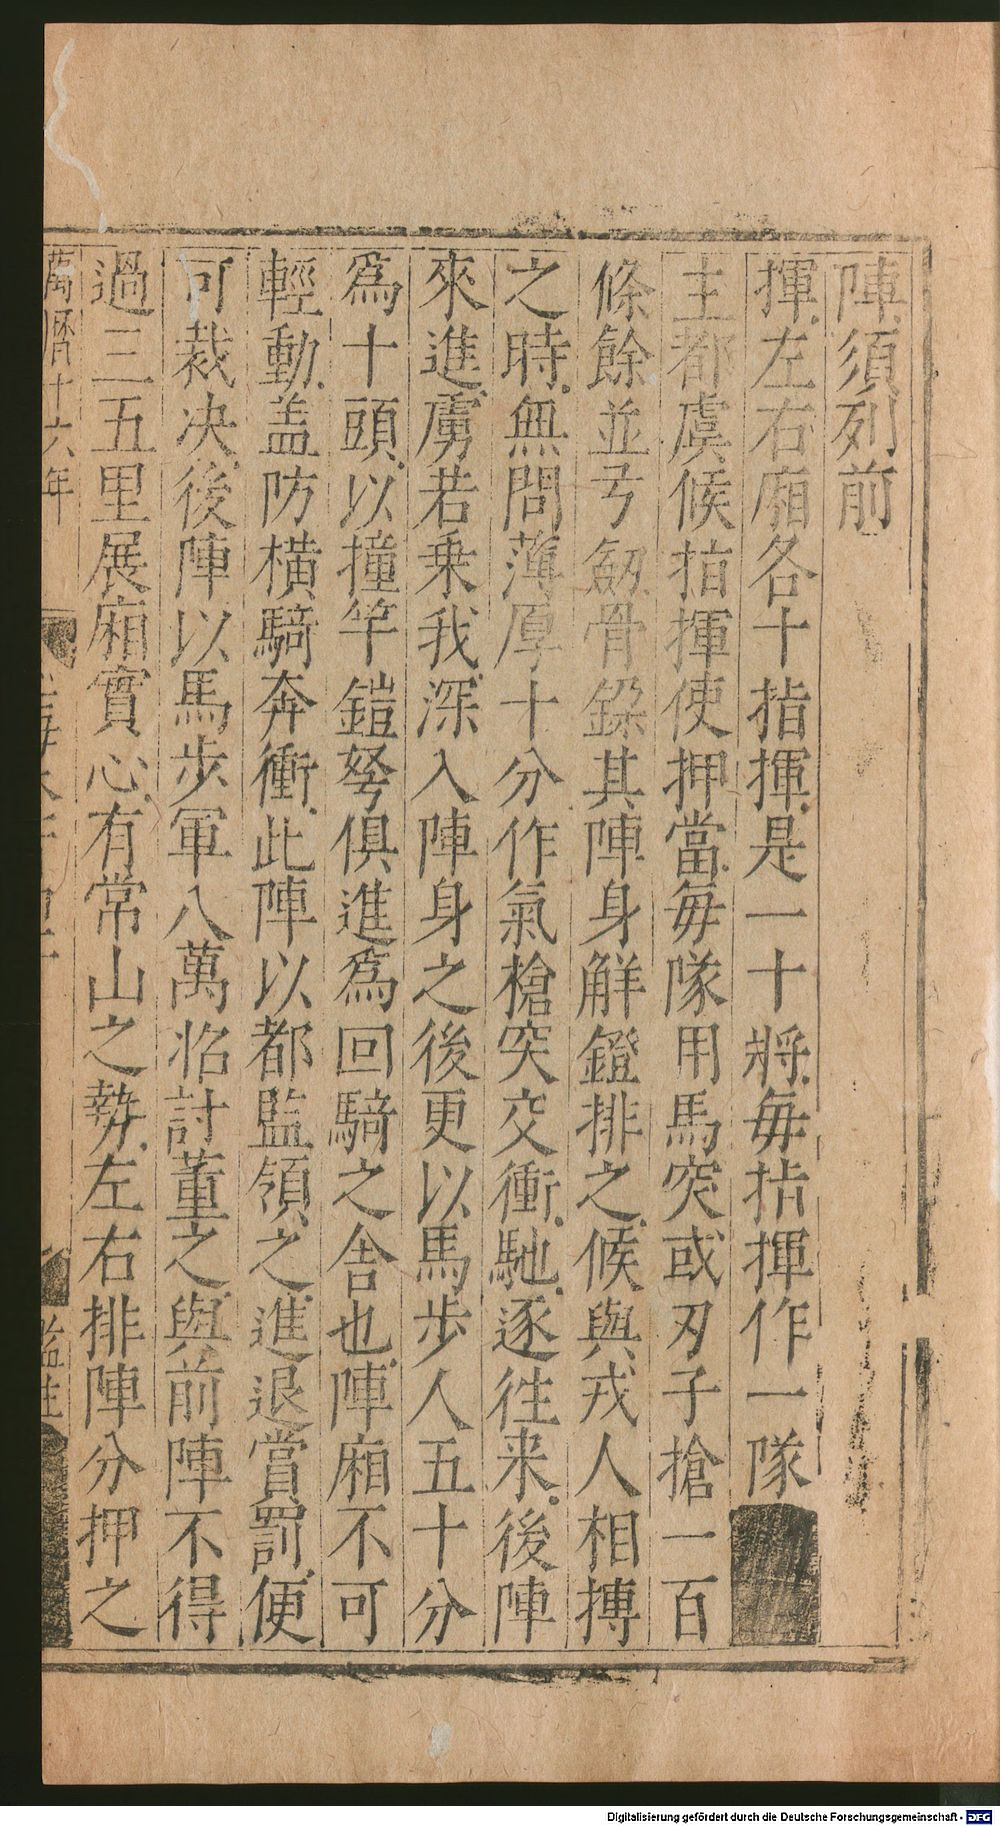 陣須列前
揮左右廂各十指揮是一十將毎指揮作一隊
主都虞候指揮使押當毎隊用馬突或刃子搶一百
條餘並弓劔骨鎩其陣身觧鐙排之候與戎人相摶
之時無問薄厚十分作氣槍突交衝馳逐徃来後陣
來進虜若乗我深入陣身之後更以馬步人五十分
爲十頭以撞竿鎧弩俱進爲回騎之舎也陣廂不可
輕動盖防橫騎奔衝此陣以都監領之進退賞罰便
可裁决後陣以馬步軍八萬招討董之與前陣不得
過三五里展廂實心有常山之勢左右排陣分押之
萬曆十六年
Digitalisierung gefördert durch die Deutsche Forschungsgemeinschaft - DFG